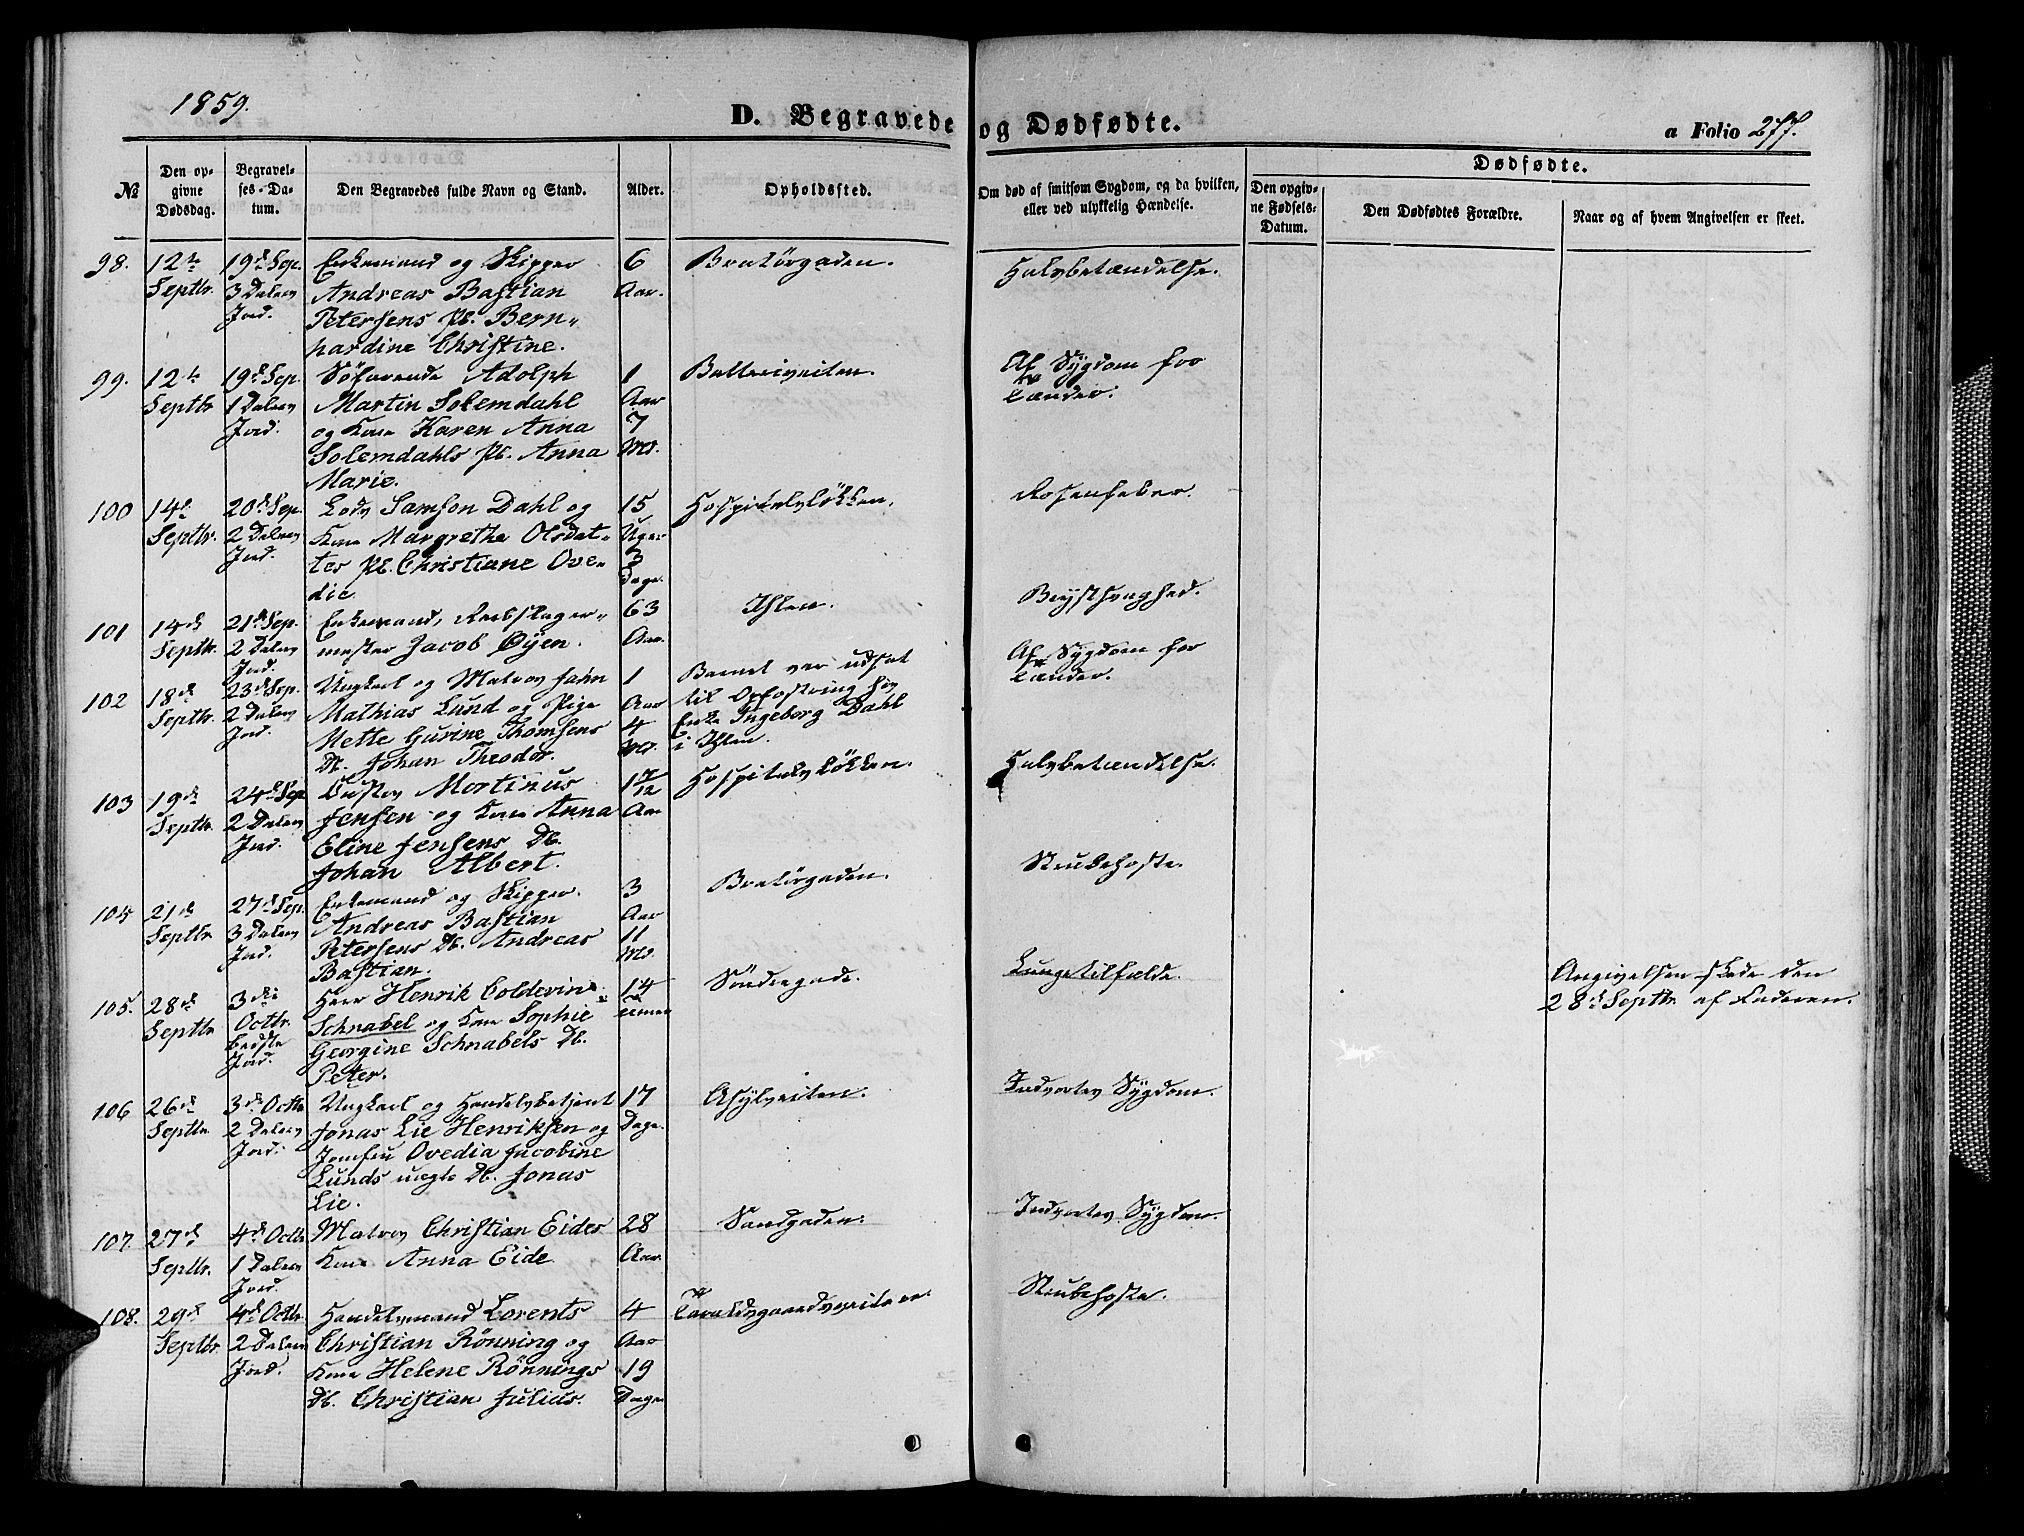 1859.
D. Begravede og Dødfødte.
a Folio 277.
№
Den opgivne Dødsdag.
Begravelses-Datum.
Den Begravedes fulde Navn og Stand.
Alder.
Opholdsted.
Om død af smitsom Sygdom, og da hvilken, eller ved ulykkelig Hændelse.
Dødfødte.
Den opgivne Fødsels-Datum.
Den Dødfødtes Forældre.
Naar og af hvem Angivelsen er skeet.
98. 12te 19de Sep. Enkemand og Skipper 6 Bratörgaden. Halsbetændelse.
Septbr. 3 Dalers Andreas Bastian Aar.
Jord. Petersens Pb. Bern-
hardine Christine.
99. 12te 19de Sep. Söfarende Adolph 1 Batteriveiten. Af Sygdom for
Septbr. 1 Dalers Martin Solemdahl Aar Tænder.
Jord. og Kone Karen Anna 7
Solemdahls Pb. Anna Md.
Marie.
100 14de 20de Sep. Lods Samson Dahl og 15 Hospitalslökken. Rosenfeber.
Septbr. 2 Dalers Kone Margrethe Olsdat- Uger
Jord. ter Pb. Christiane Ove- 3
die Dage.
101 14de 21de Sep. Enkemand, Rebslager- 63 Ihlen. Brystsvaghed.
Septbr. 2 Dalers mester Jacob Öyen. Aar.
Jord.
102 18de 23de Sep. Ungkarl og Matros Jahn 1 Barnet var udsat Af Sygdom for
Septbr. 2 Dalers Mathias Lund og Pige Aar til Opfostring hos Tænder.
Jord. Mette Gurine Thomsens 4 Enke Ingeborg Dahl
Db. Johan Theodor. Md. i Ihlen.
103 19de 24de Sep Mortinus 1 7/12 Hospitalslökken. Halsbetændelse.
Septbr. 2 Dalers Jensen og Kone Anna Aar
Jord. Eline Jensens Db.
Johan Albert.
104 21de 27de Sep. Enkemand og Skipper 3 Bratörgaden. Strubehoste.
Septbr. 3 Dalers Andreas Bastian Aar
Jord. Petersens Db. Andreas 11
Bastian. Md.
105. 28de 3die Herr Henrik Coldevin 14 Söndregade. Lungetilfælde. Angivelsen skede den
Septbr. Octbr. Schnabel og Kone Sophie Timer 28de Septbr. af Faderen.
bedste Georgine Schnabels Db.
Jord. Peter.
106 26de 3die Octbr Ungkarl og Handelsbetjent 17 Asylveiten. Indvortes Sygdom.
Septbr. 2 Dalers Jonas Lie Henriksen og Dage.
Jord. Jomfru Ovedia Jacobine
Lunds uægte Db. Jonas
Lie.
107. 27de 4de Octbr Matros Christian Eides 28 Sandgaden. Indvortes Sygdom.
Septbr. 1 Dalers Kone Anna Eide Aar.
Jord.
108. 29de 4de Octbr Handelsmand Lorents 4 Taraldsgaardsveiten. Strubehoste.
Septbr. 2 Dalers Christian Rönning og Aar
Jord. Kone Helene Rönnings 19
Db. Christian Julius. Dage